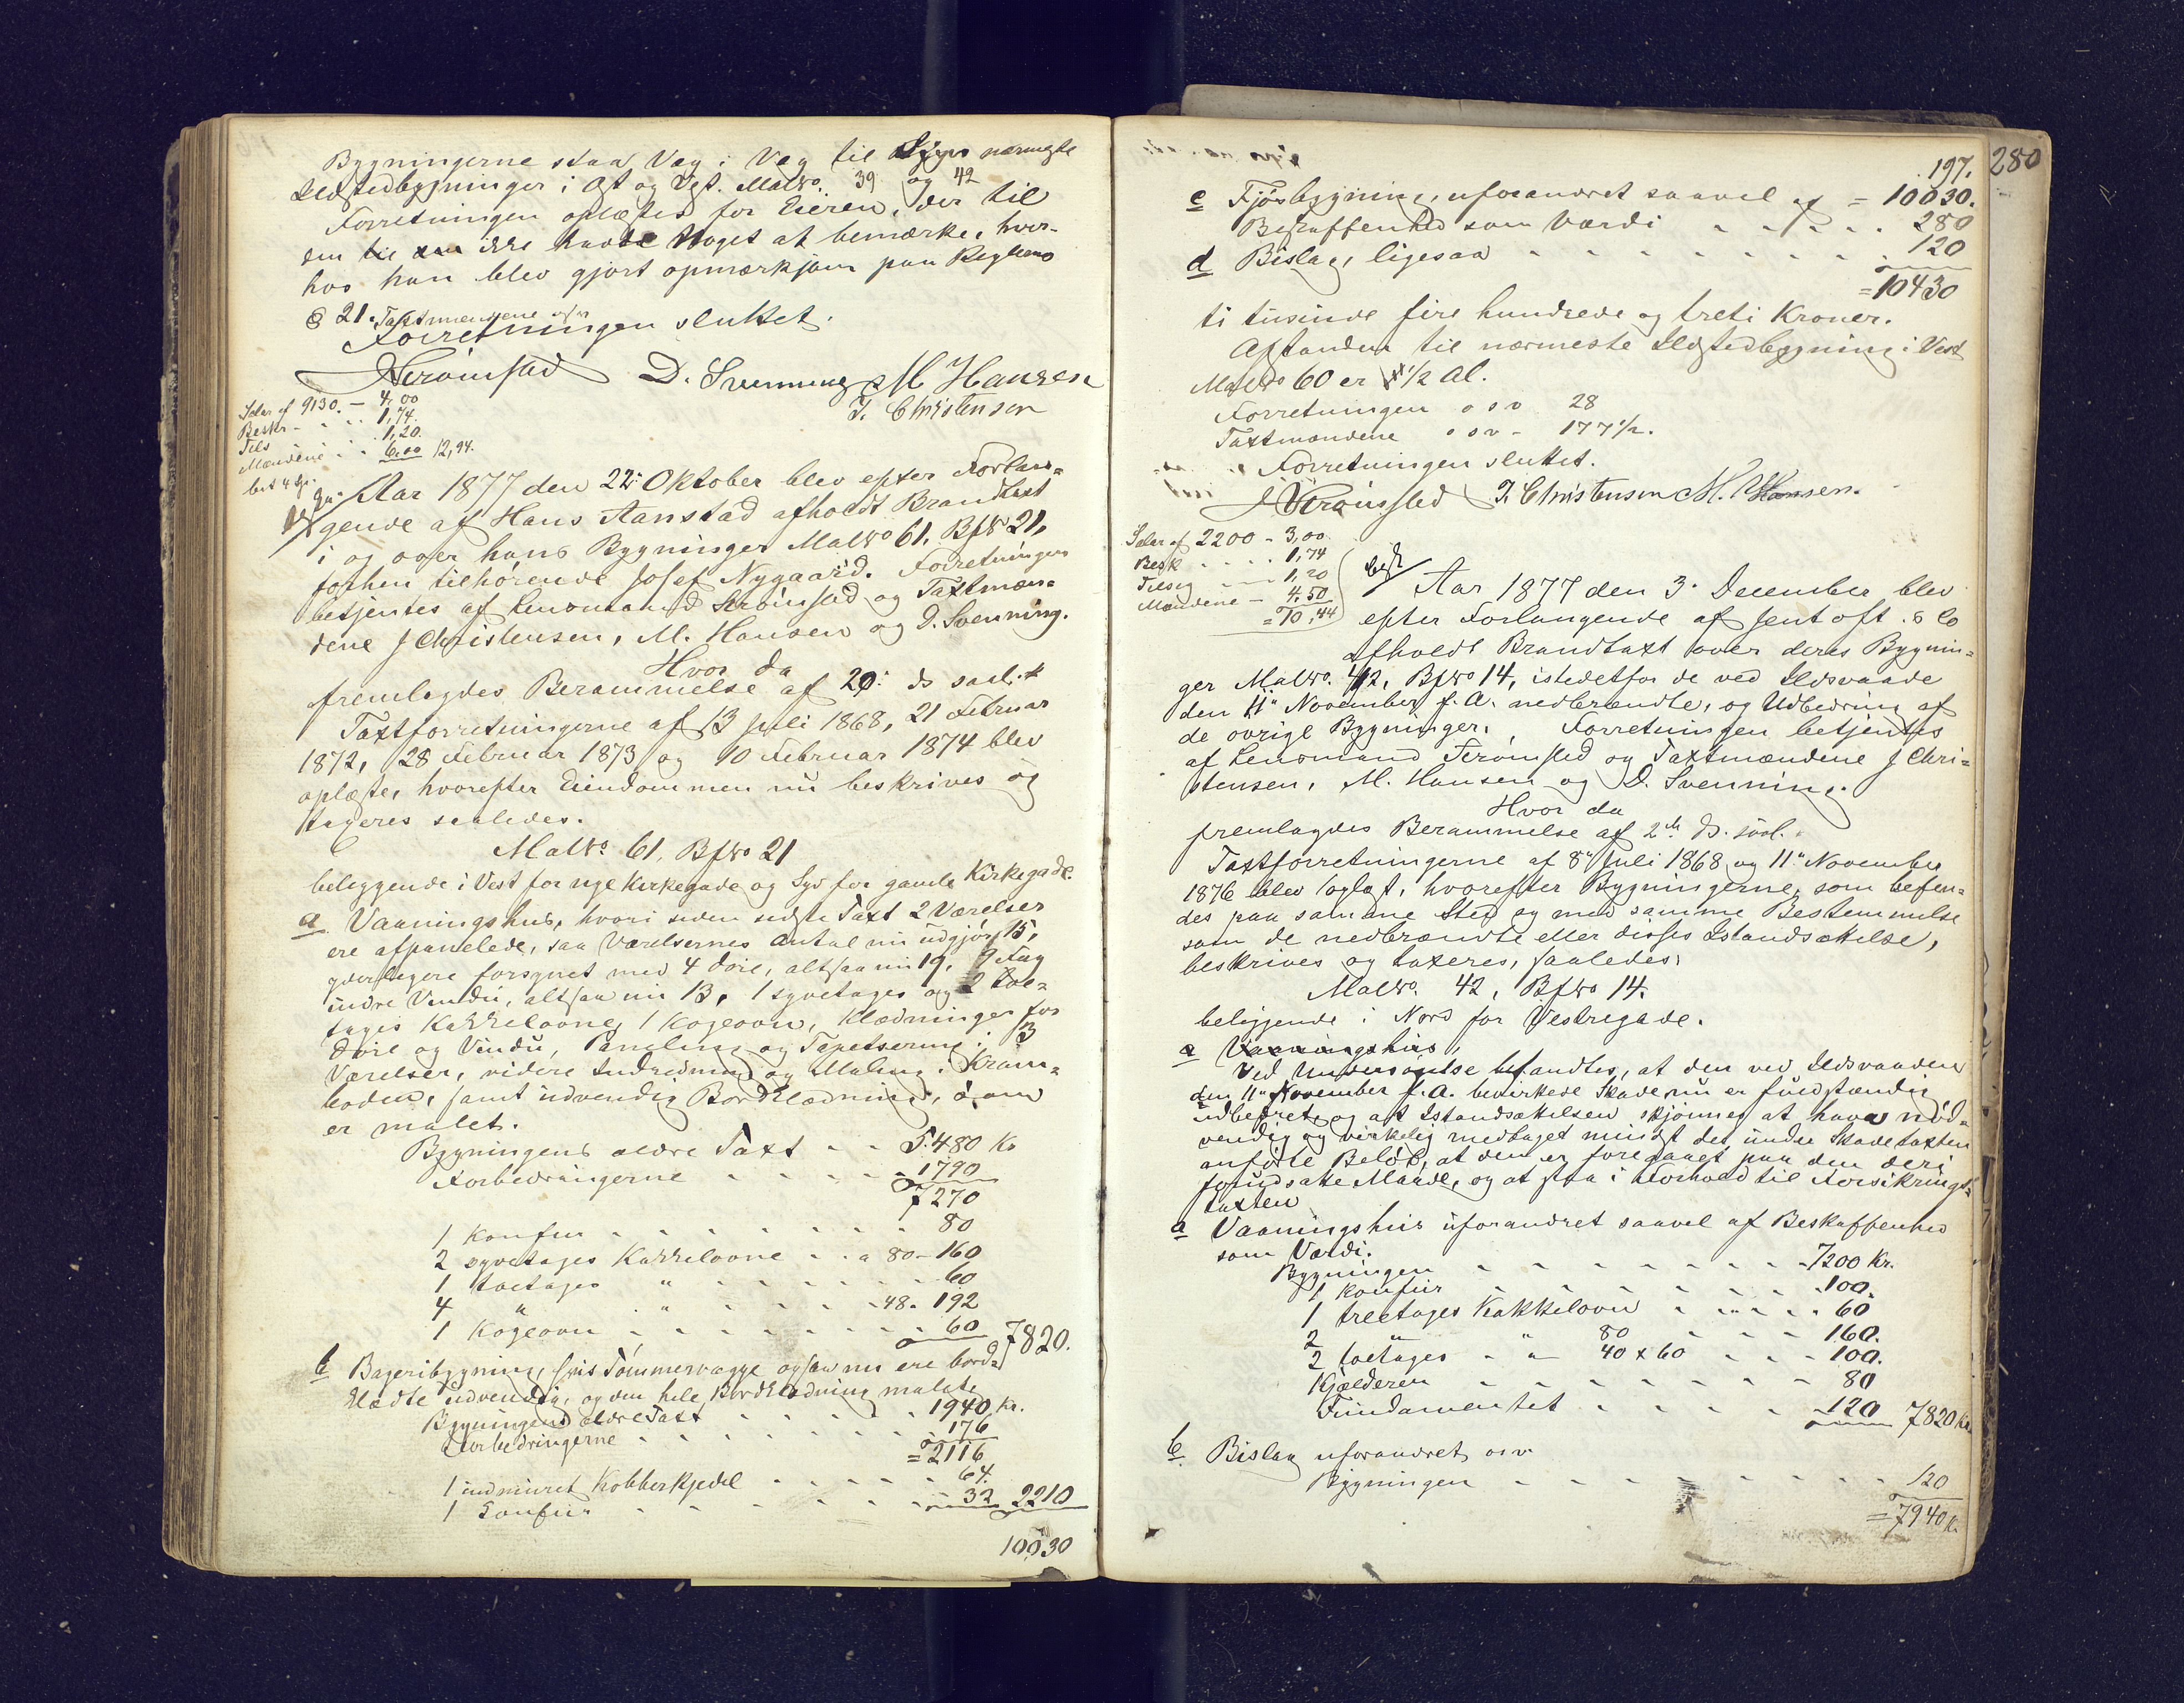 Bygningerne staa Væg i Væg til nærmeste
Ildstedbygninger i Øst og Vest. Matro. 39 og 42
Forretningen oplæstes for Eieren, der til
den ikke havde Noget at bemærke, hvor-
hos han blev gjort opmærksom paa Reglens
§ 21. Taxtmændene osv
Forretningen sluttet.
Strömsted D. Svenning M Hansen
J. Christensen
Salar af 9130. — 4,00
Beskr - . . . 1,74.
Tils . 1,20.
Mændene . . 6,00 12,94.
Aar 1877 den 22. Oktober blev efter Forlan=
gende af Hans Aanstad afholdt Brandtaxt
i og over hans Bygninger Matro 61. Bfro 21,
forhen tilhørende Josef Nygaard. Forretningen
betjentes af Lensmand Strömsted og Taxtmæn=
dene J Christensen, M. Hansen og D. Svenning.
Hvor da
fremlagdes Berammelse af 20. ds saal.
Taxtforretningerne af 13 Juli 1868, 21 Februar
1872, 28 Februar 1873 og 10 Februar 1874 blev
oplæste, hvorefter Eiendommen nu beskrives og
taxeres saaledes.
Matro 61, Bfro 21
beliggende i Vest for nye Kirkegade og Syd for gamle Kirkegade.
a. Vaaningshus, hvori siden sidste Taxt 2 Værelser
ere afpanelede, saa Værelsernes Antal nu udgjør 15,
yderligere forsynet med 4 döre, altsaa nu 19, 9 Fag
indre Vindu, altsaa nu 13, 1 syvetages og 2 toe=
tages Kakkelovne, 1 Kogeovn, Klædninger for
Döre og Vindu, Paneling og Tapetsering i 13
Værelser, videre Indredning og Maling i Kram=
boden, samt udvendig Bordklædning, som
er malet.
Bygningens ældre Taxt - - 5.480 Kr
Forbedringerne - - - - 1790
7270
1 Komfur - - - - - - 80
2 syvetages Kakkelovne . . a 80 - 160
1 toetages " - - - - - 60
4 " " - - - - 48. 192
1 Kogeovn - - - - - - 60 7820.
b Bageribygning, hvis Tömmervægge ogsaa nu ere bord=
klædte udvendig, og den hele Bordklædning malet
Bygningens ældre Taxt - - - - - 1940 Kr.
Forbedringerne - - - - - - 176
= 2116
1 indmuret Kobberkjedel - - - - - 64.
1 Komfur - - - - - - 32 2210
10030
197. 280
c Fjøsbygning, uforandret saavel af = 10030.
Beskaffenhed som Værdi - - - - . 280
d Bislag, ligesaa - - - - - - - - 120
= 10430
ti tusinde fire hundrede og treti Kroner.
Afstanden til nærmeste Ildstedbygning i Vest
Matro 60 er 1/2 Al.
Forretningen osv 28
Taxtmændene osv - 177 1/2.
Forretningen sluttet.
Strömsted J. Christensen M. Hansen.
Salar af 2200 - 3,00
Besk . . . . 1,74
Tilsig - - 1,20
Mændene - 4,50
= 10,44
Aar 1877 den 3. December blev
efter Forlangende af Jentoft & Co
afholdt Brandtaxt over deres Bygnin=
ger Matro. 42, Bfro 14, istedetfor de ved Ildsvaade
den 11" November f. A. nedbrændte, og Udbedring af
de övrige Bygninger. Forretningen betjentes
af Lensmand Strömsted og Taxtmændene J Chri=
stensen, M. Hansen og D. Svenning.
Hvor da
fremlagdes Berammelse af 2de ds. saal.
Taxtforretningerne af 8" Juli 1868 og 11" November
1876 blev oplæst, hvorefter Bygningerne, som befin=
des paa samme Sted og med samme Bestemmelse
som de nedbrændte eller disses Istandsættelse,
beskrives og taxeres, saaledes:
Matro. 42, Bfro 14.
beliggende i Nord for Vestregade.
a Vaaningshus,
Ved Undersögelse befandtes, at den ved Ildsvaaden
den 11" November f. A. bevirkede Skade nu er fuldstændig
udbedret, og at Istandsættelsen skjönnes at have nöd=
vendig og virkelig medtaget mindst det under Skadetaxten
anförte Belöb, at den er foregaaet paa den deri
forudsatte Maade, og at staa i Forhold til Forsikrings=
taxten
a Vaaningshus uforandret saavel af Beskaffenhed
som Værdi.
Bygningen - - - - - - - - 7200 Kr.
1 Komfur - - - - - - 100.
1 treetages Kakkelovn - - - - 60
2 " " 80 - - - 160.
2 toetages - - 40 x 60 - - - 100.
Kjælderen - - - - - - - 80
Fundamentet - - - - - 120 7820 Kr
b. Bislag uforandret osv.
Bygningen - - - - - - - - - 120
= 7940 Kr.